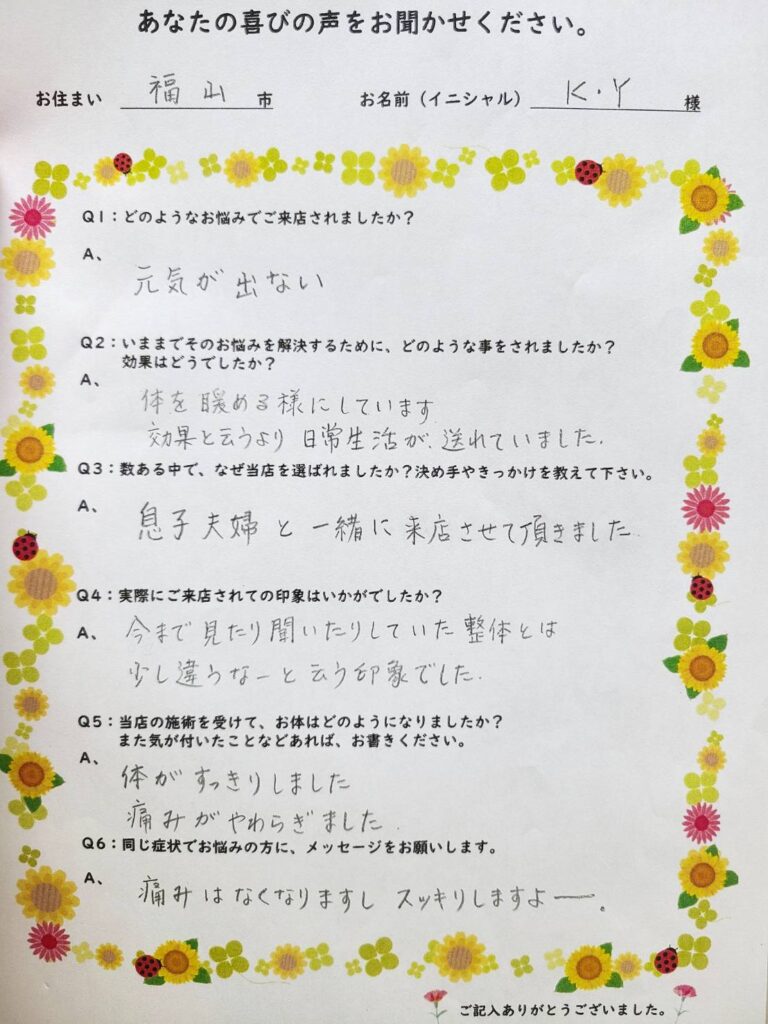 あなたの喜びの声をお聞かせください。
お住まい 福山 市 お名前（イニシャル） K・Y 様
Q1：どのようなお悩みでご来店されましたか？
A、
元気が出ない
Q2：いままでそのお悩みを解決するために、どのような事をされましたか？
効果はどうでしたか？
A、
体を暖める様にしています
効果と云うより 日常生活が、送れていました.
Q3：数ある中で、なぜ当店を選ばれましたか？決め手やきっかけを教えて下さい。
A、
息子夫婦と一緒に来店させて頂きました.
Q4：実際にご来店されての印象はいかがでしたか？
A、今まで見たり聞いたりしていた整体とは
少し違うなーと云う印象でした.
Q5：当店の施術を受けて、お体はどのようになりましたか？
また気が付いたことなどあれば、お書きください。
A、
体がすっきりしました
痛みがやわらぎました.
Q6：同じ症状でお悩みの方に、メッセージをお願いします。
A、
痛みはなくなりますし スッキリしますよー。
ご記入ありがとうございました。